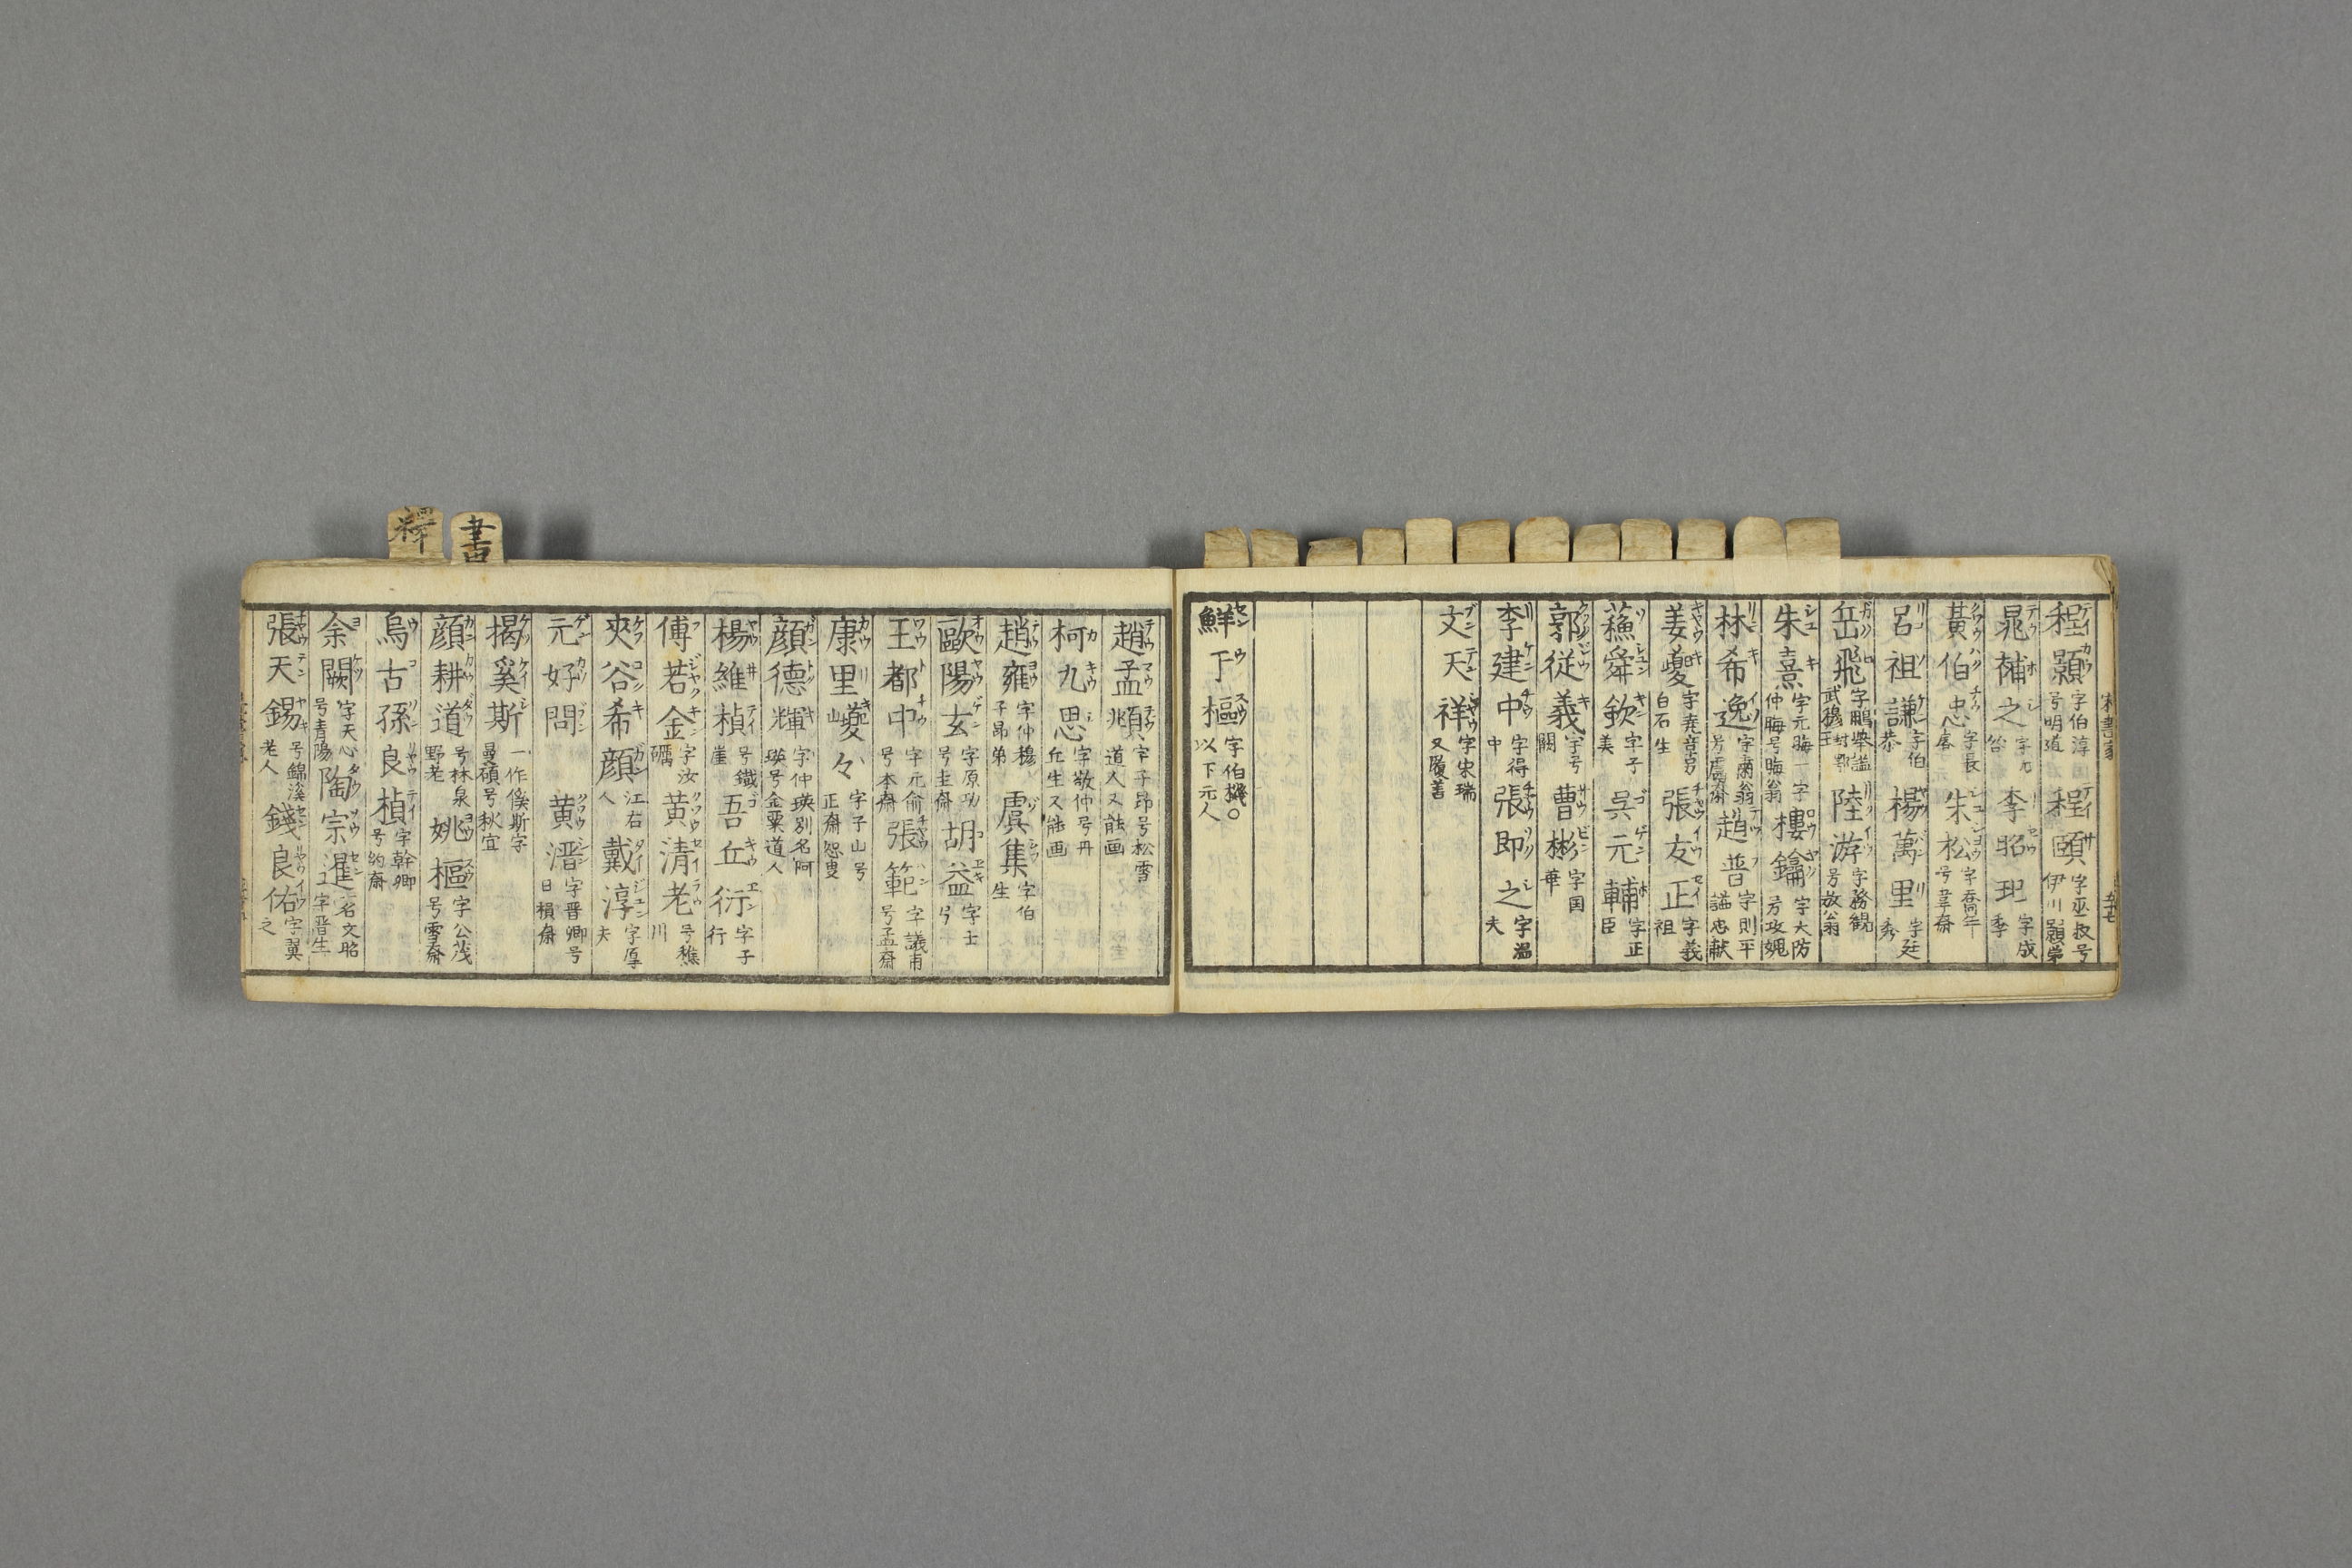 釋
書
程顥 字伯淳 号明道 程頤 字正叔号 伊川顥弟
晁補之 字无咎 李昭玘 字成季
黄伯思 字長睿 朱松 字喬年 号韋斎
呂祖謙 字伯恭 楊萬里 字廷秀
岳飛 字鵬挙謚武穆封鄂王 陸游 字務観 号放翁
朱熹 字元晦一字仲晦号晦翁 樓鑰 字大防 号攻媿
林希逸 字肅翁 号鬳斎 趙普 字則平 謚忠献
姜夔 字堯章号白石生 張友正 字義祖
蘓舜欽 字子美 呉元輔 字正臣
郭従義 字号 曹彬 字国華
李建中 字得中 張即之 字温夫
文天祥 字宋瑞 又履善
鮮于樞 字伯機○ 以下元人
趙孟頫 字子昂号松雪道人又能画
柯九思 字敬仲号丹丘生又能画
趙雍 字仲穆 子昂弟 虞集 字伯生
歐陽玄 字原功 号圭斎 胡益 字士
王都中 字元俞 号本斎 張範 字議甫 号孟斎
康里巙々 字子山号正斎恕叟
顔德輝 字仲瑛別名阿瑛号金粟道人
楊維楨 号鐵崖 吾丘衍 字子行
傅若金 字汝礪 黄清老 号樵川
夾谷希顔 江右人 戴淳 字厚夫
元好問 黄溍 字晋卿号日損斎
揭奚斯 一作傒斯字曼碩号秋宜
顔耕道 号林泉野老 姚樞 字公茂 号雪斎
烏古孫良楨 字幹卿 号約斎
余闕 字天心 号青陽 陶宗暹 名文昭 字晋生
張天錫 号錦溪老人 錢良佑 字翼之